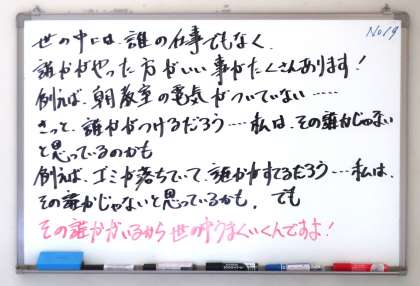 No19
世の中には、誰の仕事でもなく、
誰かがやった方がいい事がたくさんあります！
例えば、朝教室の電気がついていない……
きっと、誰かがつけるだろう……私は、その誰かじゃない
と思っているのかも
例えば、ゴミが落ちていて、誰かがすてるだろう…私は、
その誰かじゃないと思っているかも。でも
その誰かがいるから世の中うまくいくんですよ！